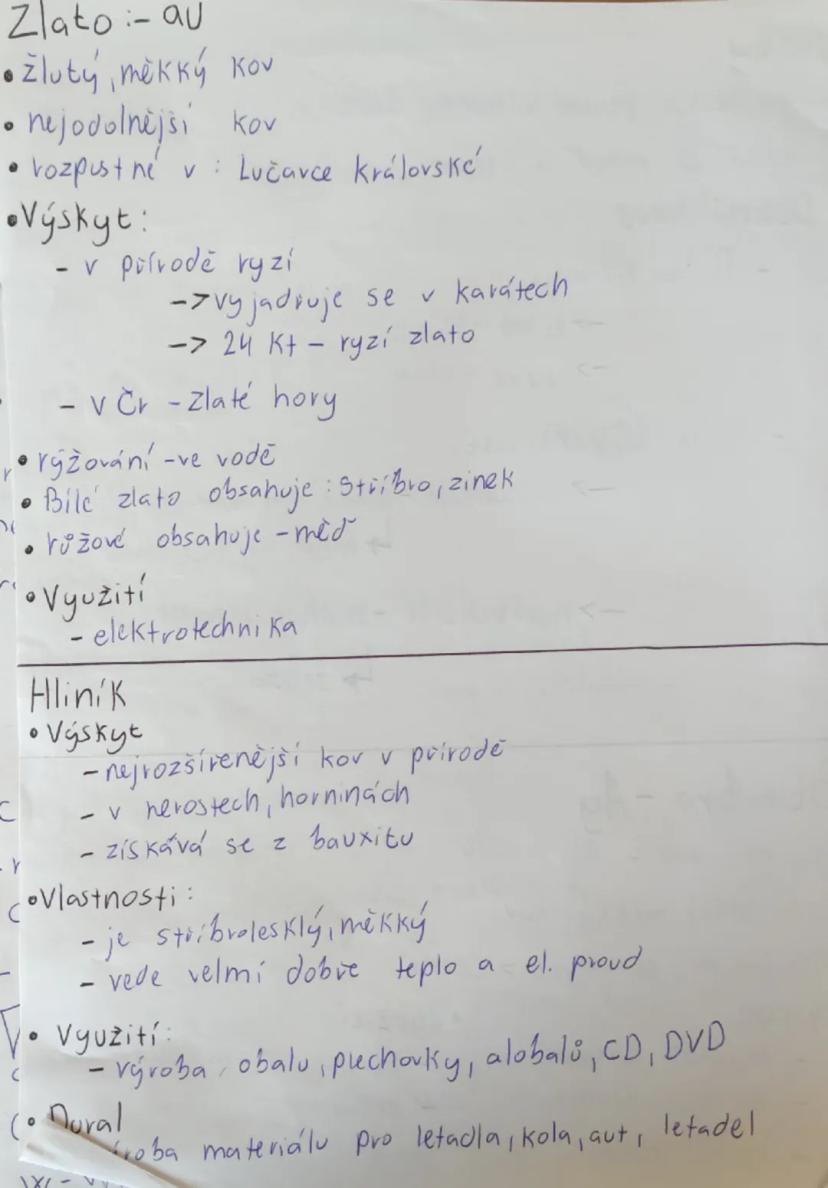 Zlato :- au
• žlutý, měkký kov
• nejodolnější kov
• rozpustné v : Lučavce královské
• Výskyt:
- v přírodě ryzí
-> vyjadruje se v karátech
-> 24 Kt - ryzí zlato
- v Čr - Zlaté hory
• rýžování - ve vodě
• Bílé zlato obsahuje : Stříbro, zinek
• růžové obsahuje - měď
• Využití
- elektrotechnika
Hliník
• Výskyt
- nejrozšířenější kov v přírodě
- v nerostech, horninách
- získává se z bauxitu
• Vlastnosti:
- je stříbrolesklý, měkký
- vede velmi dobře teplo a el. proud
• Využití:
- výroba obalu, plechovky, alobalů, CD, DVD
• Dural
materiálu pro letadla, kola, aut, letadel